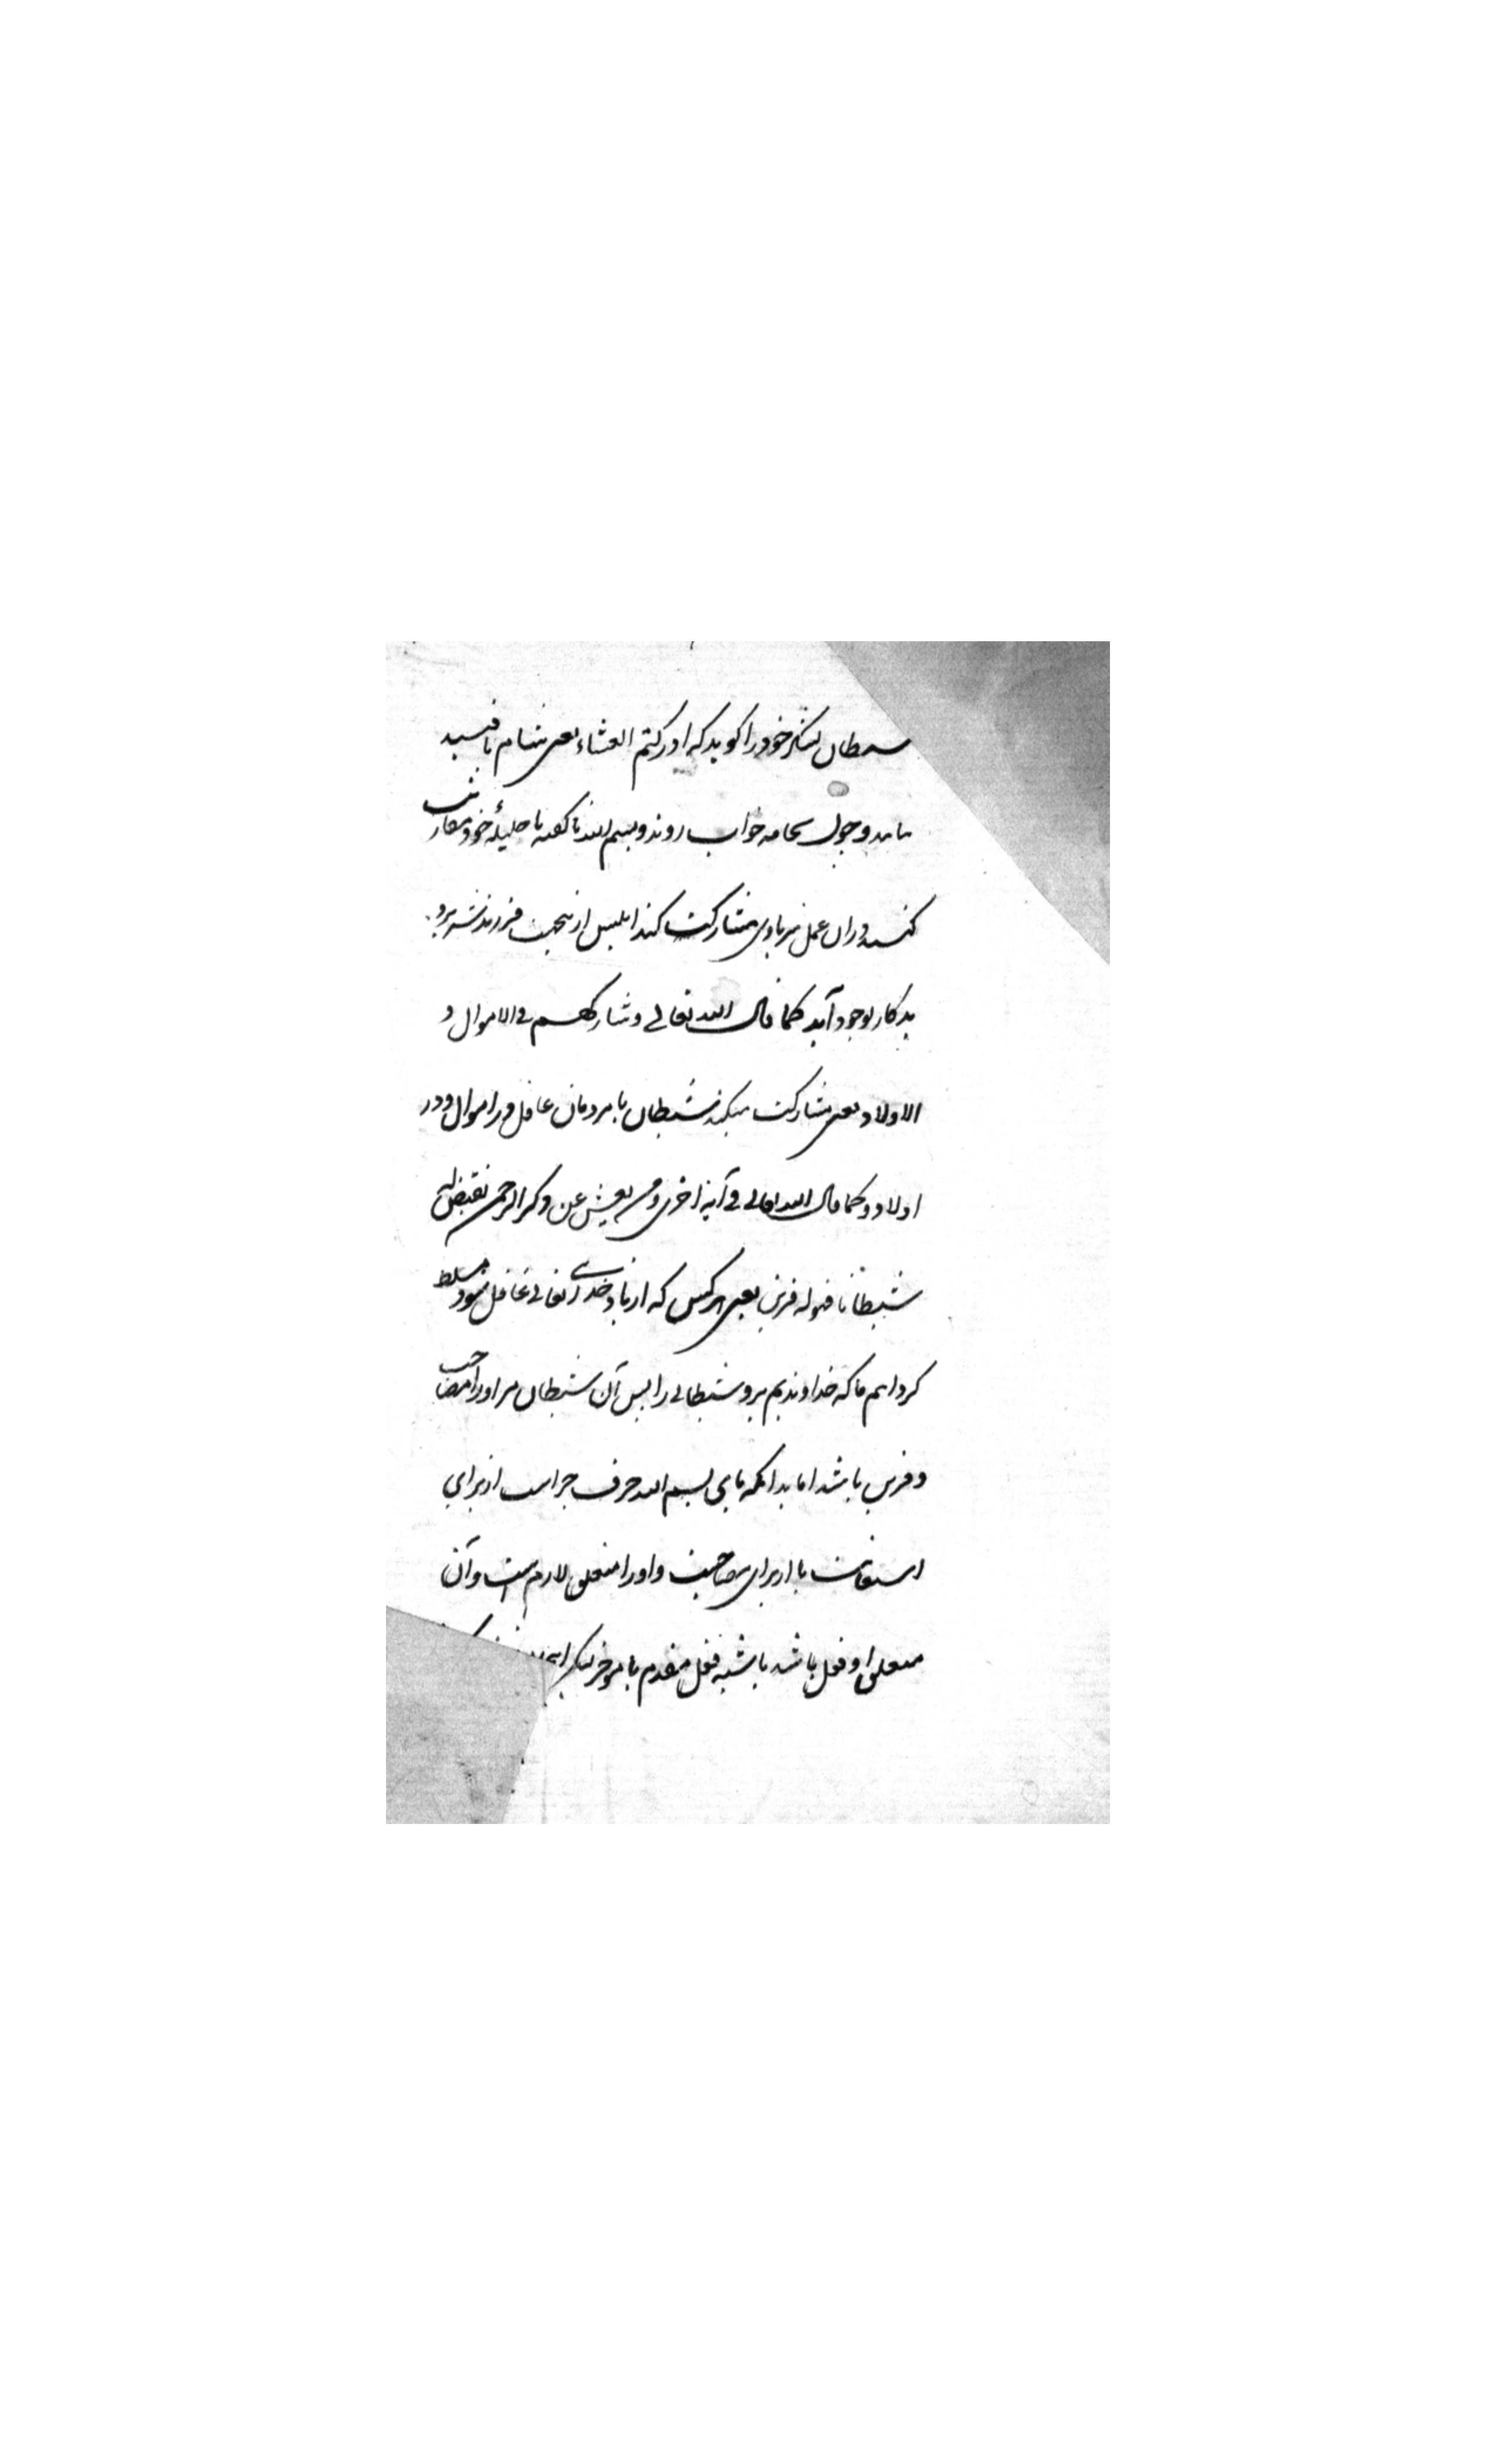 شیطان لشکر خود را کوید که ادرکتم العشاء یعنی شام یافتید
مایید و چون بجامه خواب روند و بسم الله ناکفته با حلیلهٔ خود مقاربت
کنید دران عمل نیز باوی مشارکت کند ابلیس ازینجهت فرزند شریرو
بدکار بوجود آید کما قال الله تعالی و شارکهم فی الاموال و
الاولاد یعنی مشارکت میکند شیطان با مردمان غافل در اموال و در
اولاد و کما قال الله تعالی فی آیة اخری و من یعش عن ذکر الرحمن نقیض له
شیطانا فهو له قرین یعنی هرکس که از یاد خدای تعالی غافل شود مسلط
کردانیم ما که خداوندیم برو شیطانی را پس آن شیطان مر اورا مصاحب
و قرین باشد اما بدانکه بای بسم الله حرف جر است از برای
استعانت یا از برای مصاحبت و اورا متعلق لازم است و آن
متعلق او فعل باشد یا شبه فعل مقدم یا موخر لیکن اینجا